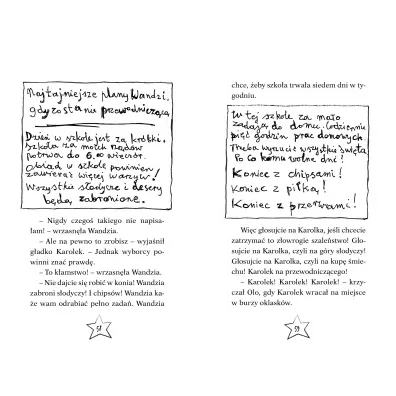 Najtajniejsze plany Wandzi,
gdy zostanie przewodniczącą
Dzień w szkole jest za krótki.
Szkoła za moich rządów
potrwa do 6.00 wieczór.
Obiad w szkole powinien
zawierać więcej warzyw!
Wszystkie słodycze i desery
będą zabronione.
– Nigdy czegoś takiego nie napisa-
łam! – wrzasnęła Wandzia.
– Ale na pewno to zrobisz – wyjaśnił
gładko Karolek. – Jednak wyborcy po-
winni znać prawdę.
– To kłamstwo! – wrzasnęła Wandzia.
– Nie dajcie się robić w konia! Wandzia
zabroni słodyczy! I chipsów! Wandzia ka-
że wam odrabiać pełno zadań. Wandzia
58
chce, żeby szkoła trwała siedem dni w ty-
godniu.
W tej szkole za mało
zadają do domu. Codziennie
pięć godzin prac domowych.
Trzeba wyrzucić wszystkie święta.
Po co komu wolne dni!
Koniec z chipsami!
Koniec z piłką!
Koniec z przerwami!
Więc głosujcie na Karolka, jeśli chcecie
zatrzymać to złowrogie szaleństwo! Gło-
sujcie na Karolka, czyli na góry słodyczy!
Głosujcie na Karolka, czyli na kupę śmie-
chu! Karolek na przewodniczącego!
– Karolek! Karolek! Karolek! – krzy-
czał Olo, gdy Karolek wracał na miejsce
w burzy oklasków.
59